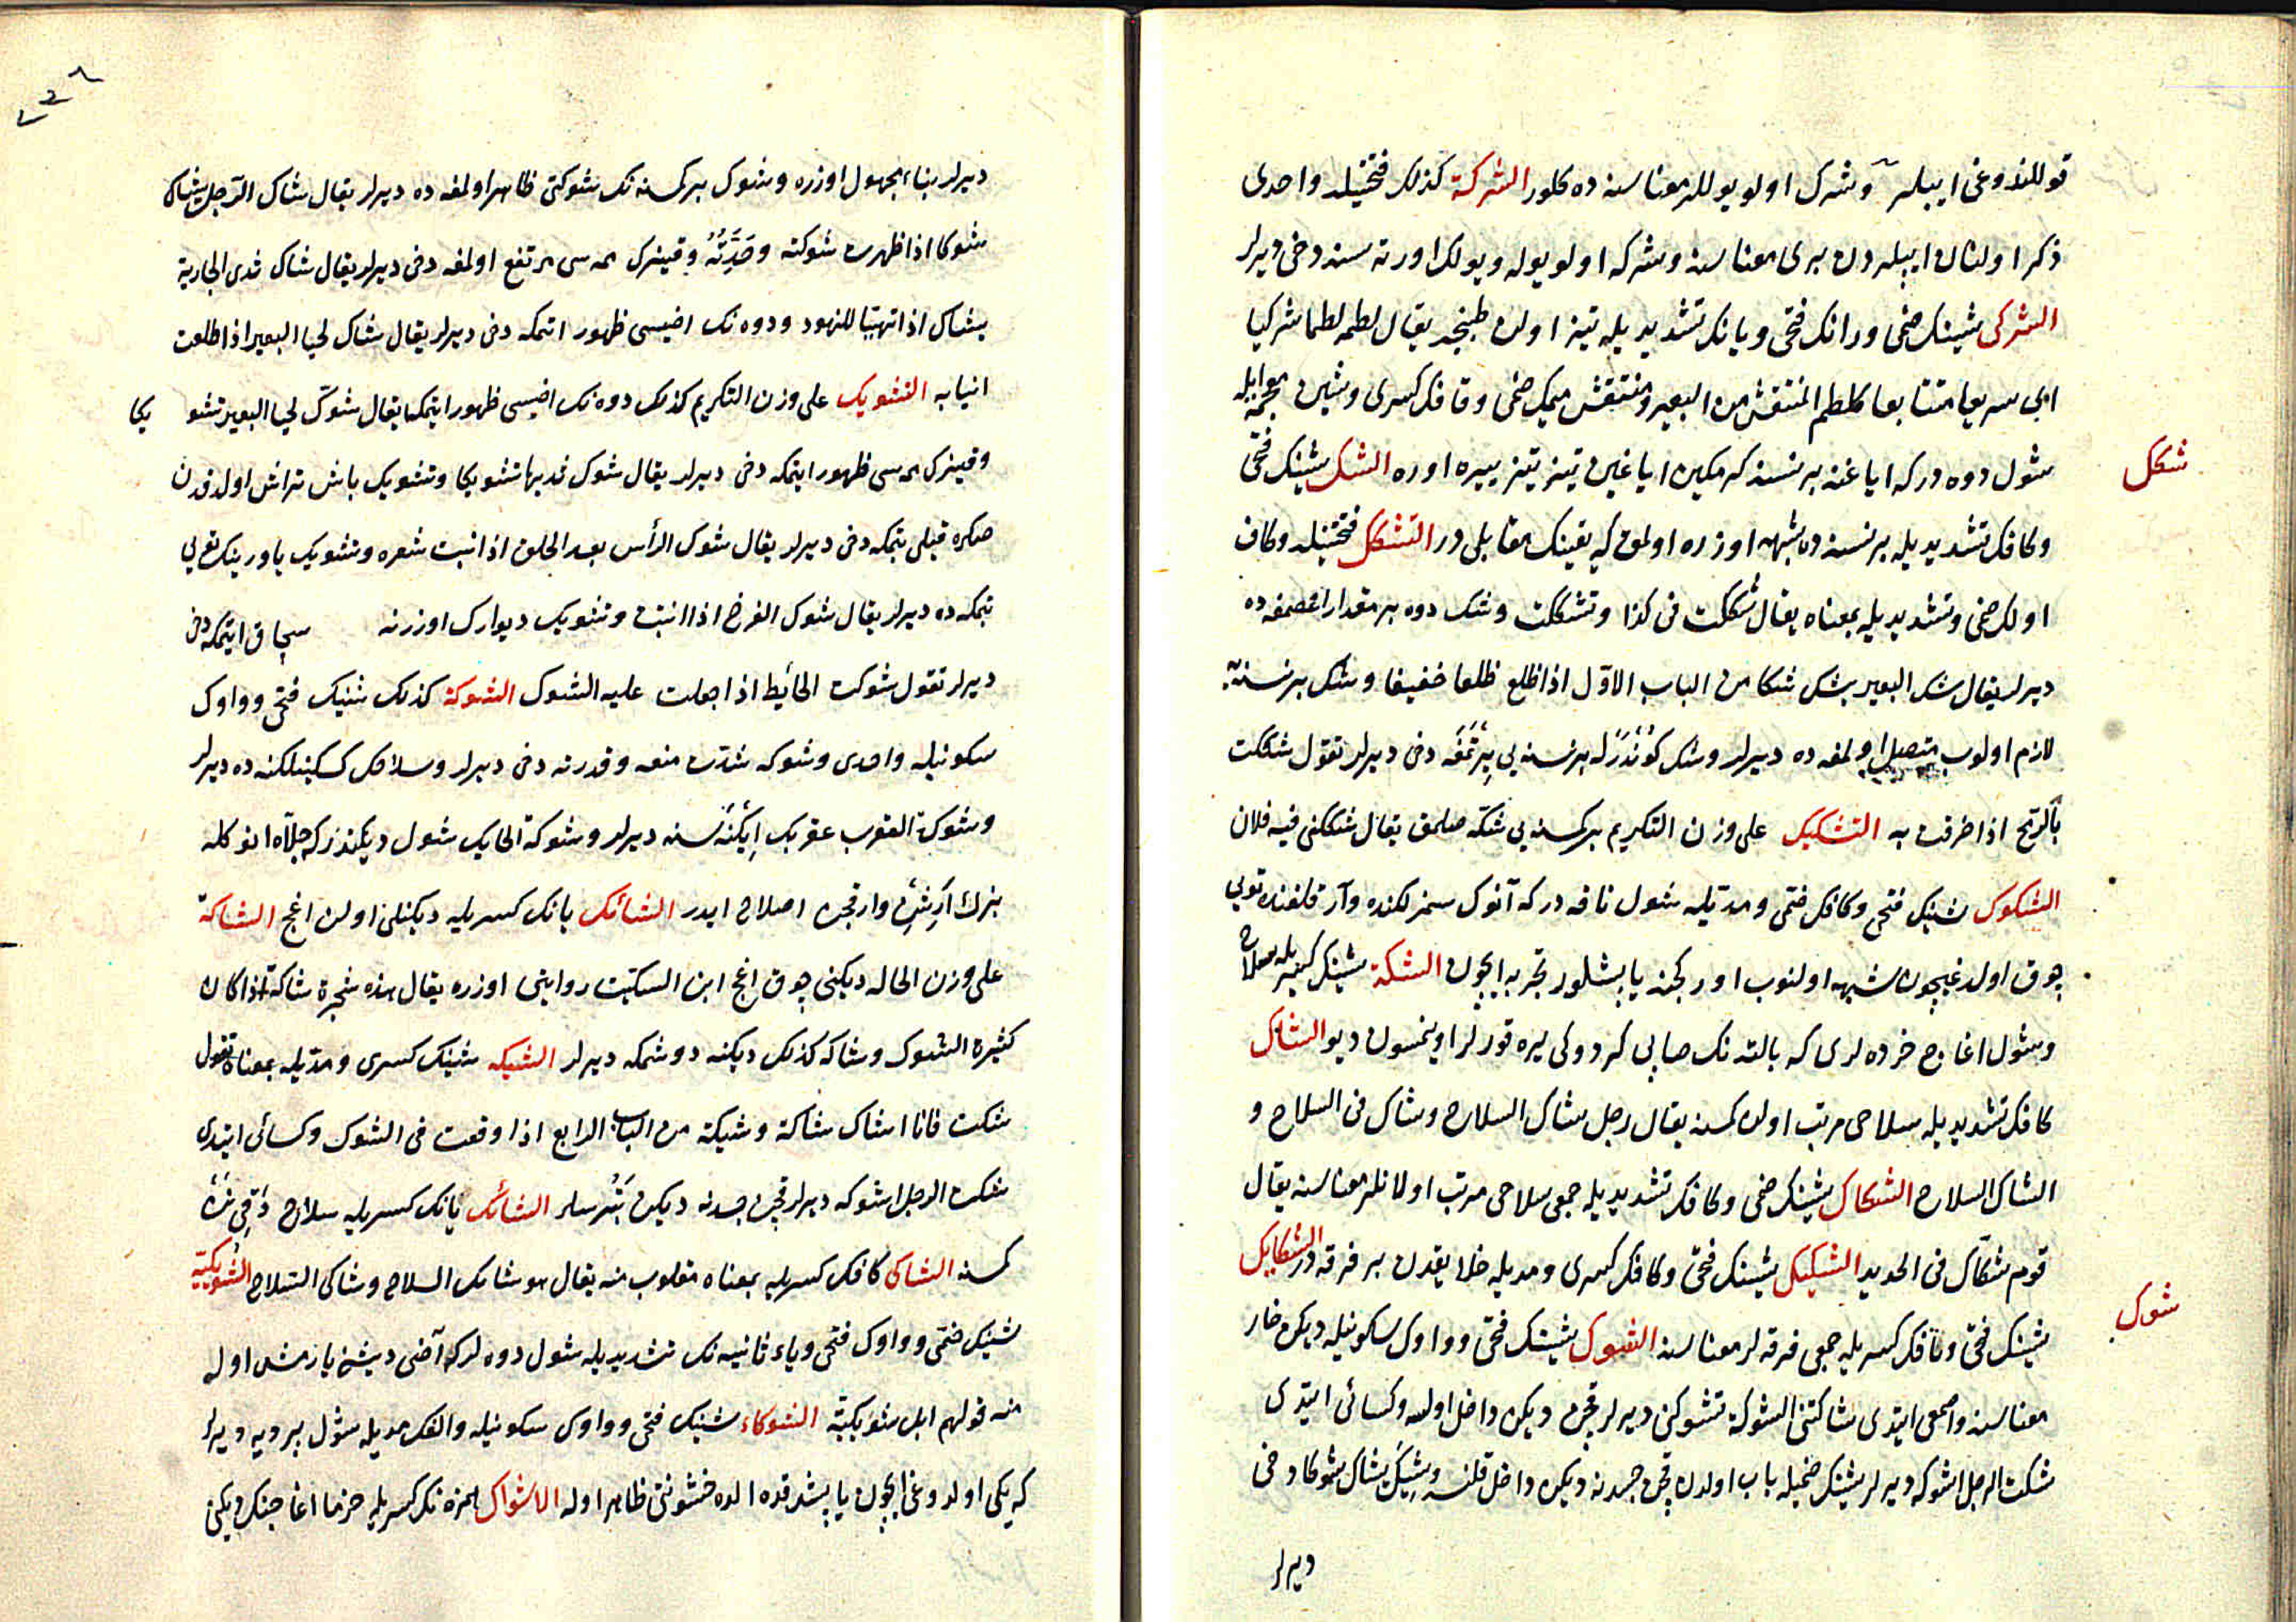 قوللندوغی ایپلر وشرک اولو یوللر معناسنه ده کلور الشرکة کذلک فتحتیله واحدی
ذکر اولنان ایپلردن بری معناسنه وشرکه اولو یوله ویولک اورته سنه دخی دیرلر
الشرکی شینک ضمی ورانک فتحی ویانک تشدیدیله تیز اولان طبنجه یقال لطمه لطما شرکیا
ای سریعا متتابعا کلطم المنتقش من البعیر ومنتقش میمک ضمی وقافک کسری وشین معجمه ایله
شکک
شول دوه درکه ایاغنه برنسنه کرمکین ایاغین تیز تیز ییره اوره الشک شینک فتحی
وکافک تشدیدیله برنسنه ده شبهه اوزره اولمق که یقینک مقابلی در التشکک فتحتیله وکاف
اولک ضمی وتشدیدیله بمعناه یقال شککت فی کذا وتشککت وشک دوه بر مقدار اغصمغه ده
دیرلر یقال شک البعیر یشک شکا من الباب الاول اذا ظلع ظلعا خفیفا وشک برنسنه یه
لازم اولوب متصل اولمغه ده دیرلر وشک کوندرله برنسنه یی یرتمغه دخی دیرلر تقول شککت
بالرمح اذا خرقت به التشکیک علی وزن التکریم برکسنه یی شکه صلمق یقال شککنی فیه فلان
الشکوک شینک فتحی وکافک ضمی ومدیله شول ناقه درکه آنوک سمزلکنده وآرقلغنده تویی
چوق اولدغیچون شبهه اولنوب اورکجنه یاپشلور تجربه ایچون الشکة شینک کسریله سلاح
وشول اغاج خرده لری که بالته نک صاپی کردوکی یره قورلر اوینمسون دیو الشاک
کافک تشدیدیله سلاحی مرتب اولان کسنه یقال رجل شاک السلاح وشاک فی السلاح و
الشاک السلاح الشکاک شینک ضمی وکافک تشدیدیله جمعی سلاحی مرتب اولانلر معناسنه یقال
قوم شکاک فی الحدید الشکیک شینک فتحی وکافک کسری ومدیله خلایقدن بر فرقه در الشکایک
شوک
شینک فتحی وکافک کسریله جمعی فرقه لر معناسنه الشوک شینک فتحی وواوک سکونیله دیکن خار
معناسنه واصمعی ایتدی شاکتنی الشوکة تشوکنی دیرلر قچن دیکن داخل اولسه وکسائی ایتدی
شکت الرجل اشوکه دیرلر شینک ضمیله باب اولدن قچن جسدنه دیکن داخل قلنه وشیک یشاک شوکا دخی
دیرلر
دیرلر بناء مجهول اوزره وشوک برکسنه نک شوکتی ظاهر اولمغه ده دیرلر یقال شاک الرجل یشاک
شوکا اذا ظهرت شوکته وحدته وقیزک ممه سی مرتفع اولمغه دخی دیرلر یقال شاک ثدی الجاریة
یشاک اذا تهیأ للنهود ودوه نک اضیسی ظهور اتمکه دخی دیرلر یقال شاک لحیا البعیر اذا طلعت
انیابه التشویک علی وزن التکریم کذلک دوه نک اضیسی ظهور ایتمک یقال شوک لحیا البعیر تشو یکا
وقیزک ممه سی ظهور ایتمکه دخی دیرلر یقال شوک ثدیها تشویکا وتشویک باش تراش اولدقدن
صکره قیلی بتمکه دخی دیرلر یقال شوک الرأس بعد الحلق اذا نبت شعره وتشویک یاورینک تویی
بتمکه ده دیرلر یقال شوک الفرخ اذا انبت وتشویک دیوارک اوزرنه سچاق ایتمکه دخی
دیرلر تقول شوکت الحائط اذا جعلت علیه الشوک الشوکة کذلک شینک فتحی وواوک
سکونیله واحدی وشوکه شدت منعه وقدرته دخی دیرلر وسلاحک کسکینلکنه ده دیرلر
وشوکة العقرب عقربک ایکنه سنه دیرلر وشوکة الحایک شول دیکندرکه جلاه انوکله
بزک ارشن وارقجن اصلاح ایدر الشائک یانک کسریله دیکنلی اولان اغج الشاکة
علی وزن الحاله دیکنی چوق اغج ابن السکیت روایتی اوزره یقال هذه شجرة شاکة اذا کان
کثیرة الشوک وشاکه کذلک دیکنه دوشمکه دیرلر الشیکه شینک کسری ومدیله بمعناه تقول
شکت فانا اشاک شاکة وشیکة من الباب الرابع اذا وقعت فی الشوک وکسائی ایتدی
شکت الرجل اشوکه دیرلر قچن جسدنه دیکن الشائک یانک کسریله سلاح
کسنه الشاکی کافک کسریله بمعناه مقلوب منه یقال هو شائک السلاح وشاکی السلاح الشویکیة
شینک ضمی وواوک فتحی ویاء ثانیه نک تشدیدیله شول دوه لرکه آضی دیشی یارمش اوله
منه قولهم ابل شویکیة الشوکاء شینک فتحی وواوک سکونیله والفک مدیله شول بردیه دیرلر
که یکی اولدوغی ایچون یاپشدقده الده خشونتی ظاهر اوله الاشواک همزه نک کسریله خرما اغاجنک دیکنی